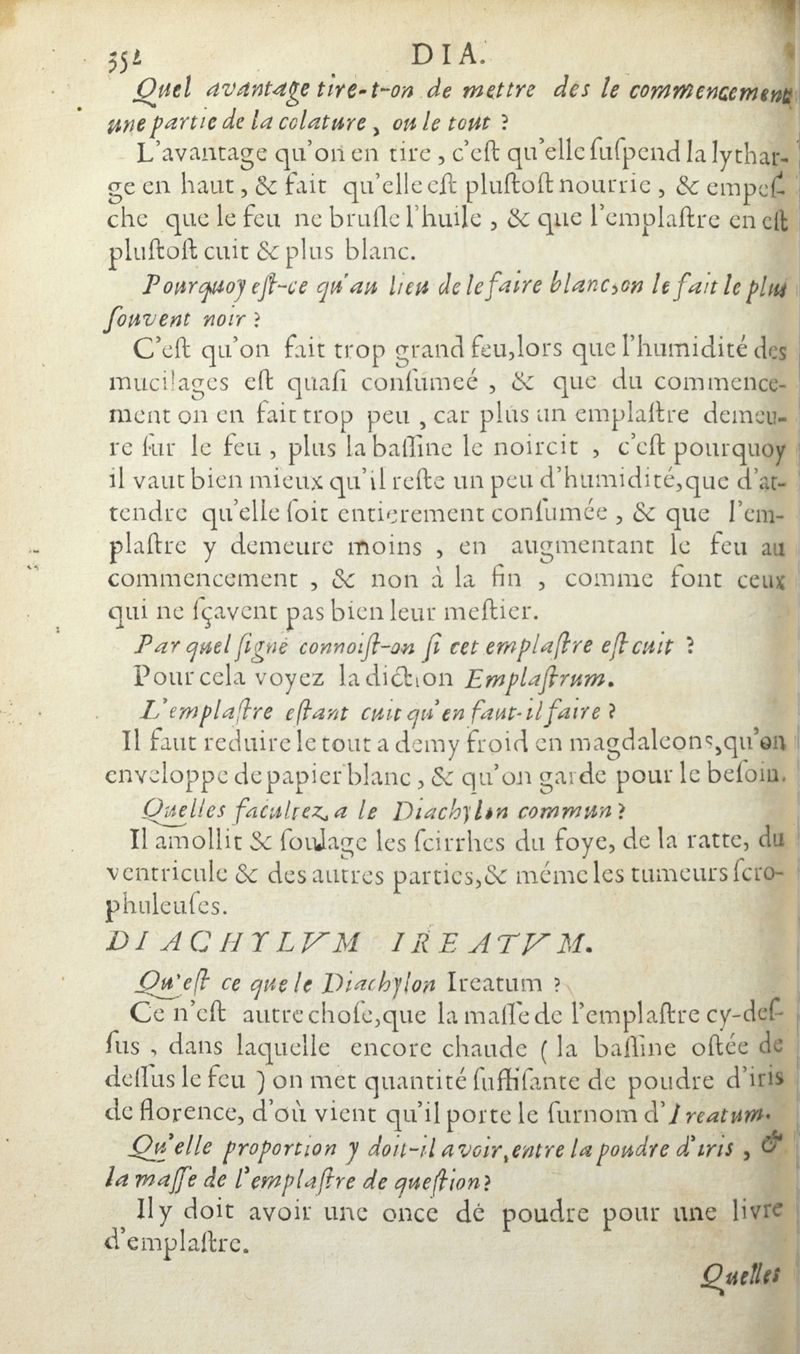 352 DIA.
Quel avantage tire-t-on de mettre des le commencement
une partie de la colature, ou le tout ?
L'avantage qu'on en tire, c'eſt qu'elle ſuſpend la lythar-
ge en haut, & fait qu'elle eſt pluſtoſt nourrie, & empeſ-
che que le feu ne bruſle l'huile, & que l'emplaſtre en eſt
pluſtoſt cuit & plus blanc.
Pourquoy eſt-ce qu'au lieu de le faire blanc, on le fait le plus
ſouvent noir ?
C'eſt qu'on fait trop grand feu, lors que l'humidité des
mucilages eſt quaſi conſumeé, & que du commence-
ment on en fait trop peu, car plus un emplaſtre demeu-
re ſur le feu, plus la baſſine le noircit, c'eſt pourquoy
il vaut bien mieux qu'il reſte un peu d'humidité, que d'at-
tendre qu'elle ſoit entierement conſumée, & que l'em-
plaſtre y demeure moins, en augmentant le feu au
commencement, & non à la fin, comme font ceux
qui ne ſçavent pas bien leur meſtier.
Par quel ſigne connoiſt-on ſi cet emplaſtre eſt cuit ?
Pour cela voyez la diction Emplaſtrum.
L'emplaſtre eſtant cuit qu'en faut-il faire ?
Il faut reduire le tout a demy froid en magdaleons, qu'on
enveloppe de papier blanc, & qu'on garde pour le beſoin.
Quelles facultez a le Diachylon commun ?
Il amollit & ſoulage les ſcirrhes du foye, de la ratte, du
ventricule & des autres parties, & méme les tumeurs ſcro-
phuleuſes.
DIACHYLVM IREATVM.
Qu'eſt ce que le Diachylon Ireatum ?
Ce n'eſt autre choſe, que la maſſe de l'emplaſtre cy-deſ-
ſus, dans laquelle encore chaude ( la baſſine oſtée de
deſſus le feu ) on met quantité ſuffiſante de poudre d'iris
de florence, d'où vient qu'il porte le ſurnom d'Ireatum.
Qu'elle proportion y doit-il avoir, entre la poudre d'iris, &
la maſſe de l'emplaſtre de queſtion ?
Il y doit avoir une once dé poudre pour une livre
d'emplaſtre.
Quelles